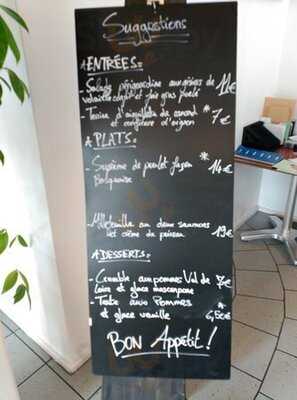 Suggestions
ENTRÉES:
- Salade périgourdine aux gésiers de 11€
volaille confit et foie gras poêlé
- Terrine d'aiguillettes de canard * 7€
et confiture d'oignon
PLATS:
- Suprême de poulet façon * 14€
Basquaise
aux deux saumons
et crème de poireau 19€
DESSERTS:
- Crumble aux pommes Val de 7€
Loire et glace mascarpone
- Tarte aux Pommes *
et glace vanille 6,50€
BON Appétit!